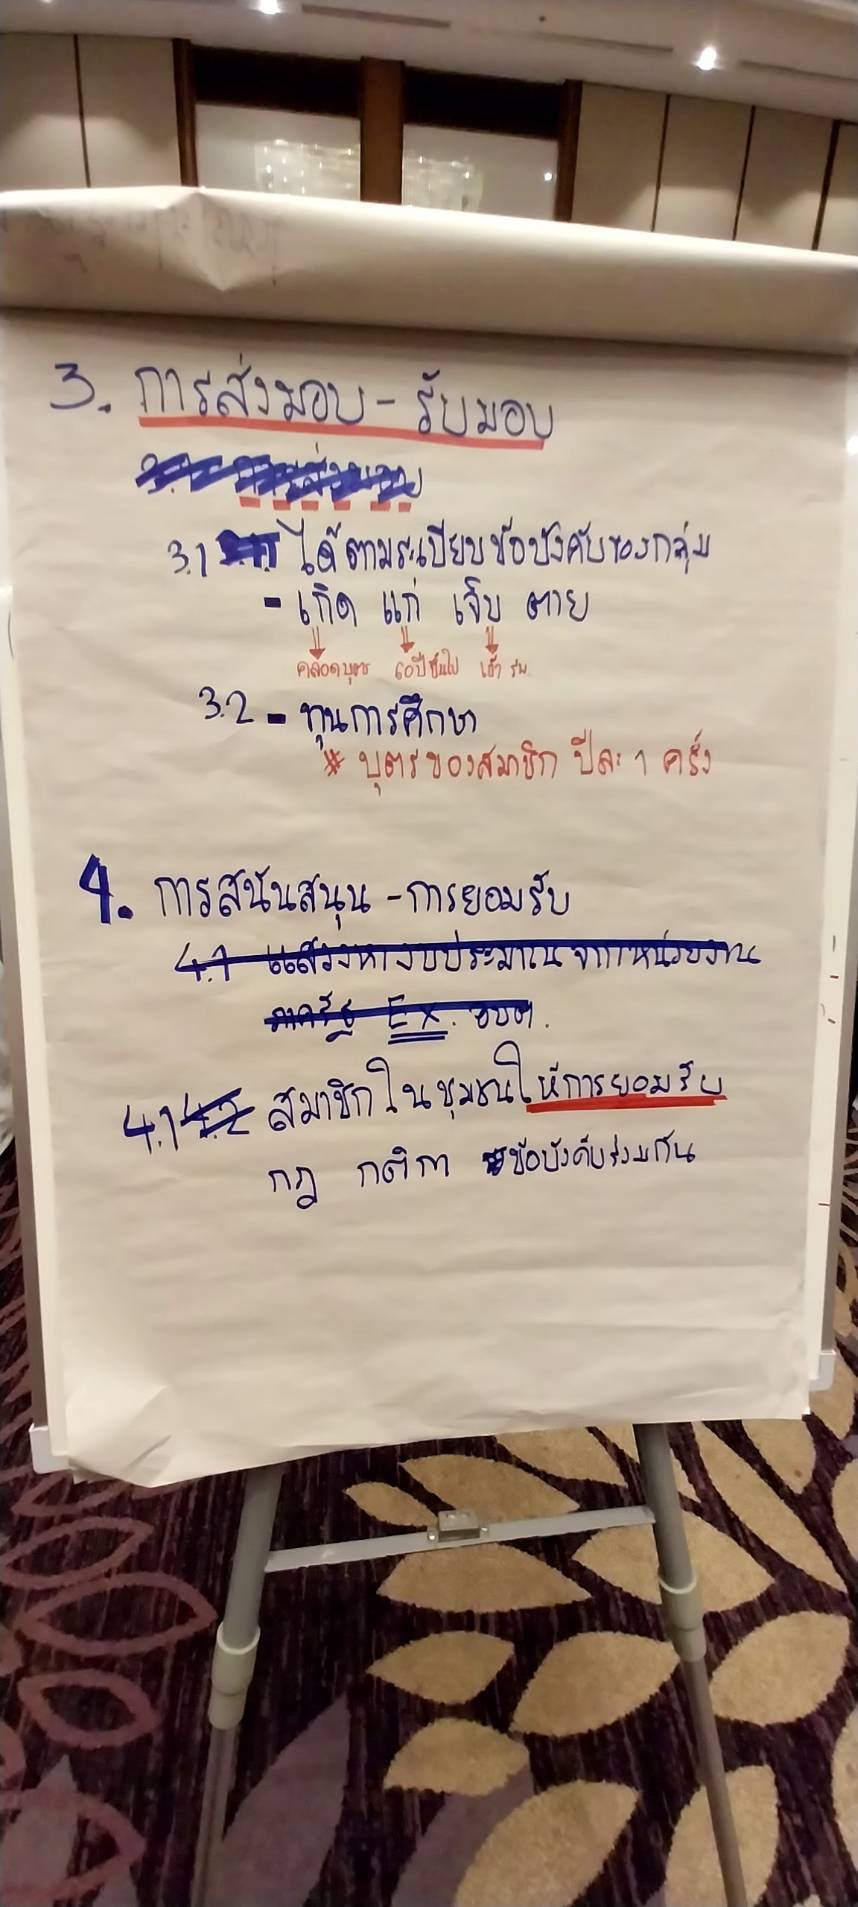 3. การส่งมอบ - รับมอบ
3.1 ได้ตามระเบียบข้อบังคับของกลุ่ม
- เกิด แก่ เจ็บ ตาย
คลอดบุตร 60 ปีขึ้นไป เข้า รพ.
3.2 - ทุนการศึกษา
* บุตรของสมาชิก ปีละ 1 ครั้ง
4. การสนันสนุน - การยอมรับ
4.1 แสวงหางบประมาณจากหน่วยงาน
ภาครัฐ Ex. อบต.
4.1 4.2 สมาชิกในชุมชนให้การยอมรับ
กฎ กติกา ข้อบังคับร่วมกัน